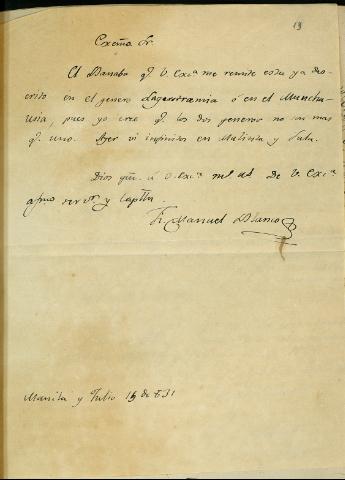 19
Exc̃mo Sr.
El Banaba q.e V. Exc.a me remite esta ya des-
crito en el genero Lagerstraemia ó en el Munchau-
sia, pues yo creo q.e los dos generos no son mas
q.e uno. Ayer vi infinitos en Malinta y Tala.
Dios gũe. á V. Exc.a m.s a.s de V. Exc.a
af.mo serv.or y Capp.n
Fr. Manuel Blanco
Manila y Julio 15 de 831